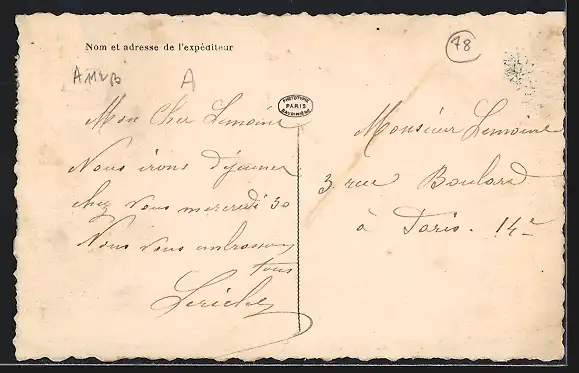 Nom et adresse de l'expéditeur
78
A
PHOTOTYPIE
PARIS
Mon Cher Lemoine
Nous irons déjeuner
chez vous mercredi 30
Nous vous embrassons
tous
Leriche
Monsieur Lemoine
3 rue Boulard
à Paris. 14e